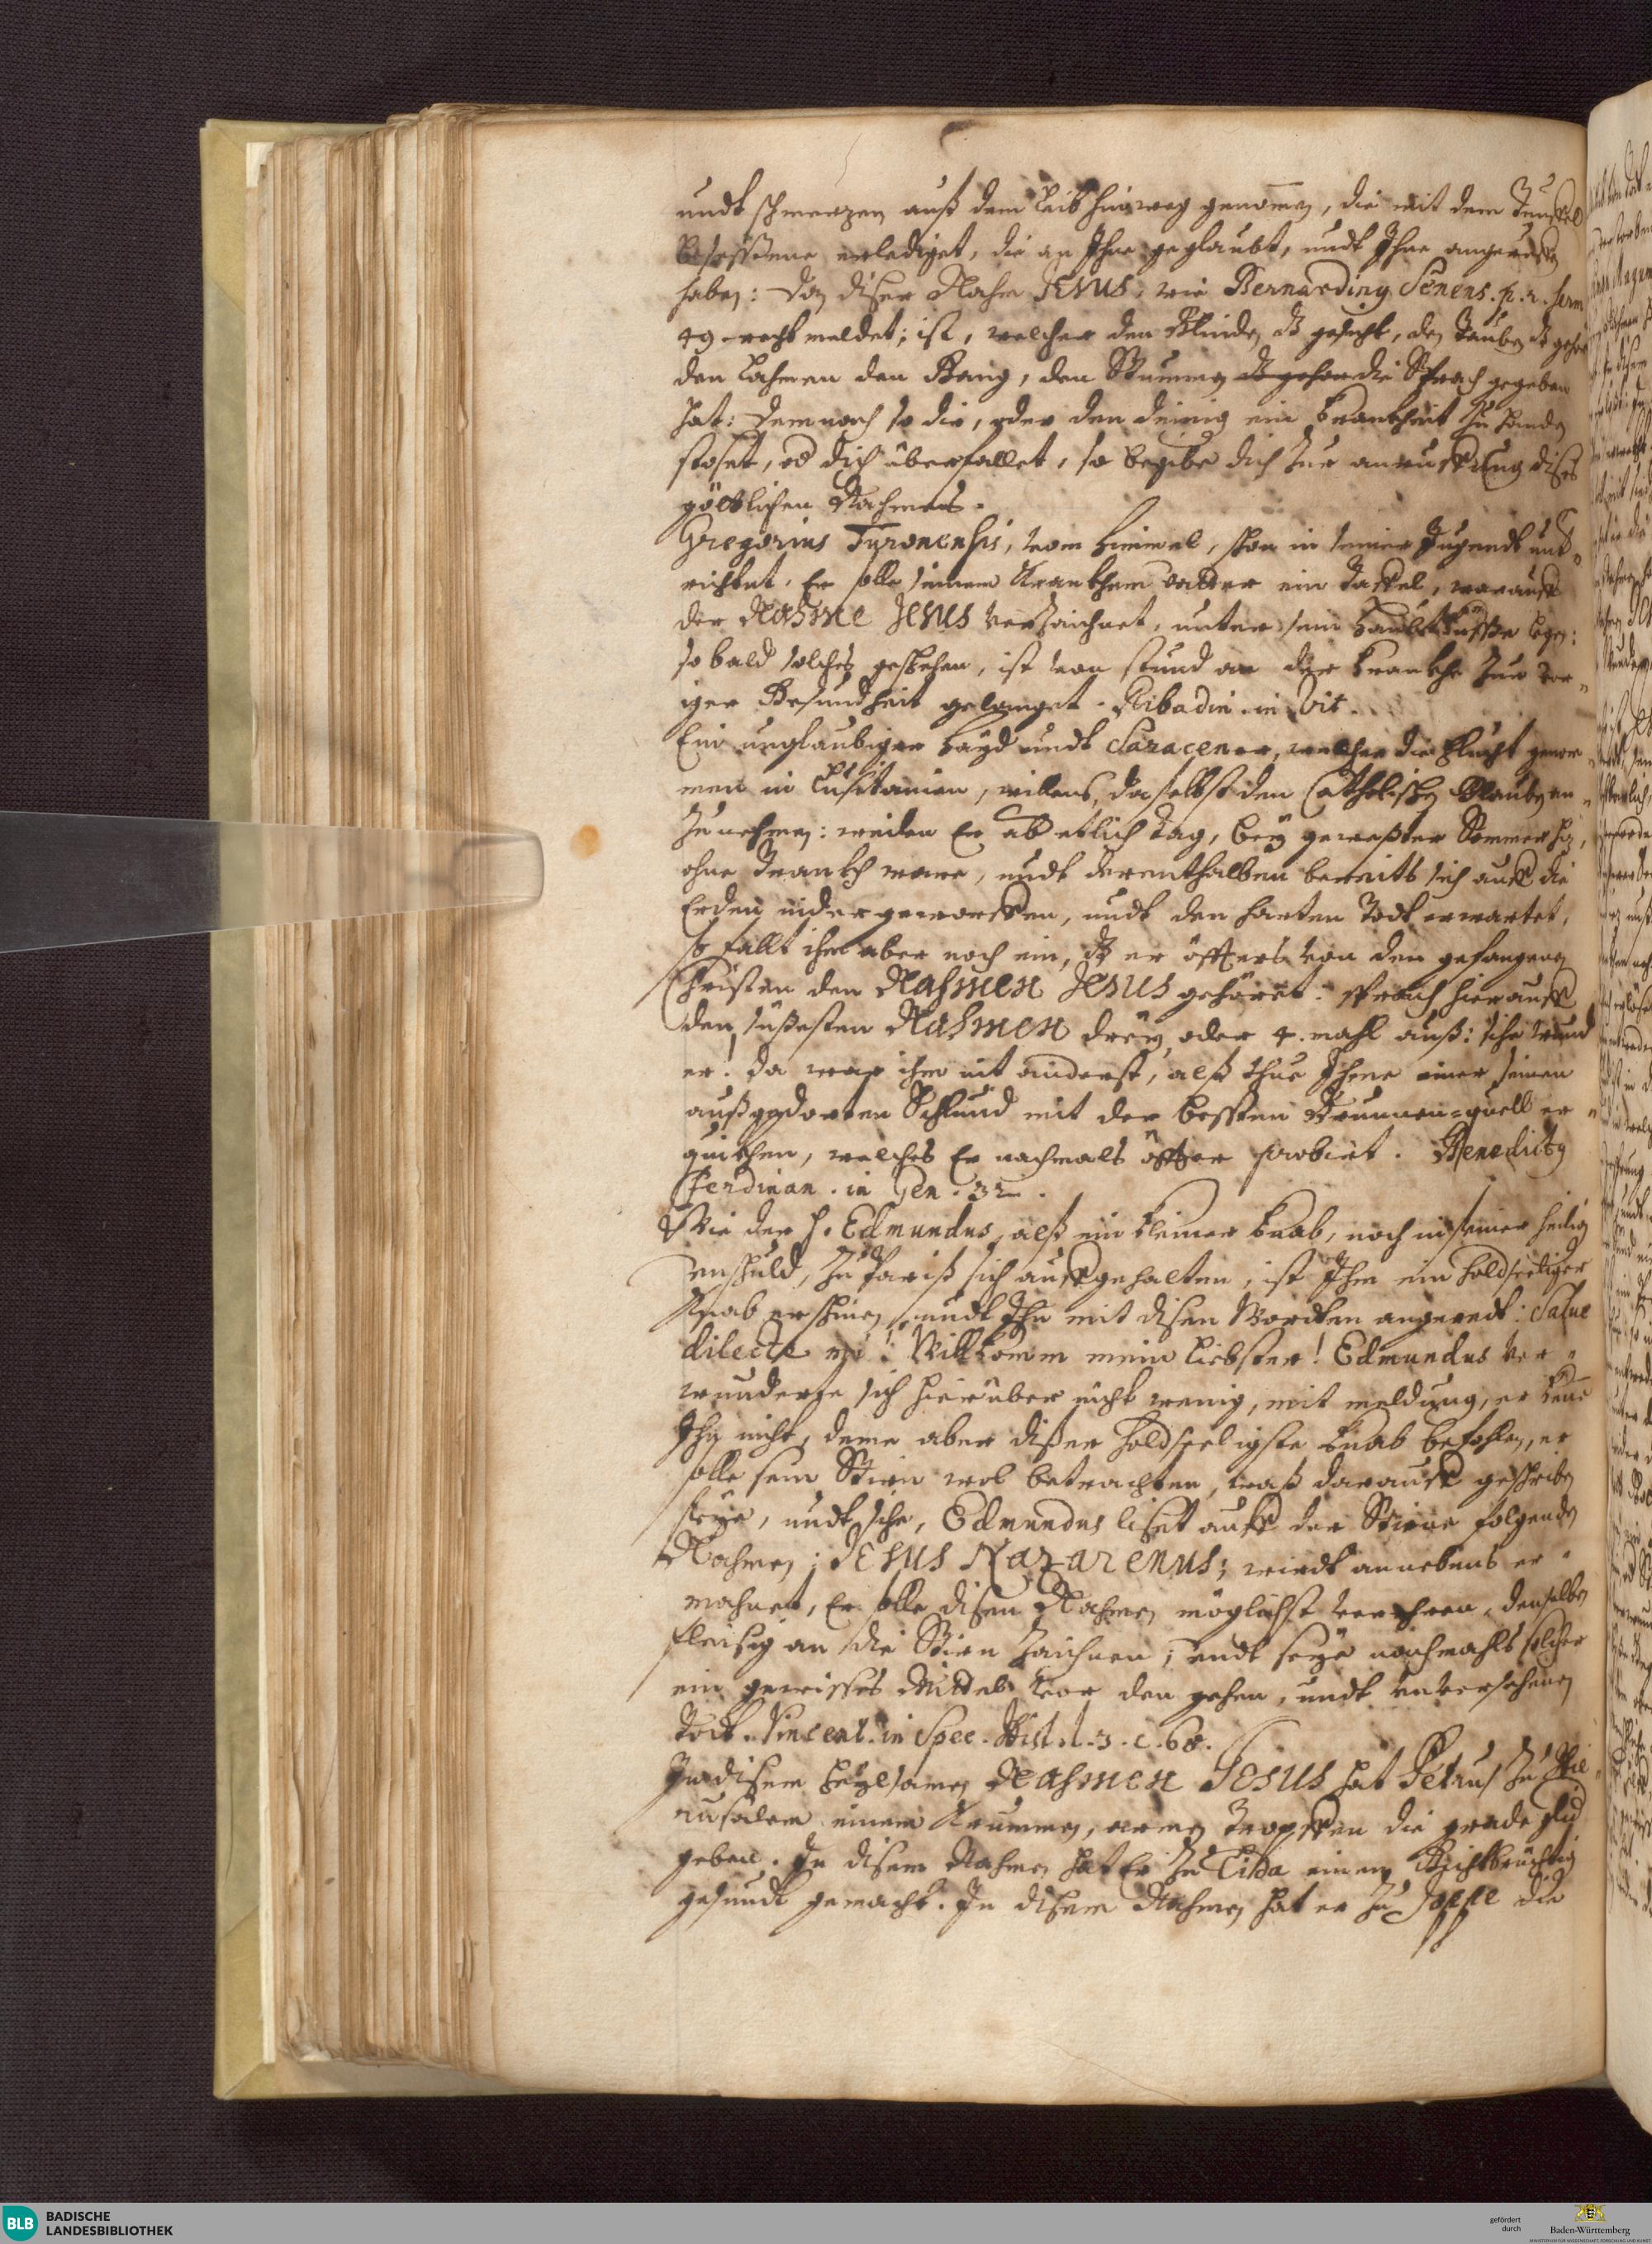 undt schmerzen auß dem Leib hinweg genomen, die mit dem Teuffel
Besessene erlediget, die an Ihne geglaubt, undt Ihne angeruffen
haben: Das diser Nahm JESUS, wie Bernarding Senens. p. 2. serm
49 recht meldet; ist, welcher den Blinden dz gesicht, den Tauben dz gehör
den Lahmen den Gang, den Stummen dz gehör die Sprach gegeben
hat: Demnach so dir, oder den deinig ein Krankheit zu handen
stoset, od dich überfallet, so begibe dich zur anruffung dises
göttlichen Nahmens.
Gregorius Turonensis, vom Himmel, schon in seiner Jugendt unt
richtet, Er solle seinem Krankhen Vatter ein Taffel, worauff
der Nahme JESUS verzaichnet, unter sein Haubtküsse legen:
so bald solches geschehen, ist von stund an der Krankhe zur vor
iger Gesundheit gelanget. Ribadin. in Vit.
Ein unglaubiger Hayd undt Saracener, welcher die Flucht genom
men in Lusitanien, willens, daselbst den Catholischen Glauben an
zu nehmen: weilen Er ab etlich Tag, bey gröster Sommer hiz,
ohne Trankh ware, undt derenthalben bereits sich auff die
Erden nider geworffen, undt den harten Todt erwartet,
so fallt ihm aber noch ein, dz er öffters von den gefangenen
Christen den Nahmen JESUS gehöret: sprach hierauff
den süßesten Nahmen drey, oder 4. mahl auß: sihe wund
er! da war ihm nit anderst, alß thue Ihme einer seinen
außgedorten Schlund mit der besten Brunnen-quell er
quikhen, welches Er nachmals öffter probiert. Benedictg
Ferdinan. in Gen. 32.
Wie der H. Edmundus, alß ein kleiner Knab, noch in seiner heilig
unschuld, zu Pariß sich auffgehalten, ist Ihm ein holdseeliger
Knab erschinen, undt Ihn mit disen Worten angeredt: Salve
dilecte mi! Willkomm mein liebster! Edmundus ver
wunderte sich hierüber nicht wenig, mit meldung, er kene
Ihn nicht, deme aber dißer holdseeligste Knab befohlen, er
solle sein Stirn wol betrachten, waß darauff geschriben
seye, undt sihe, Edmundus liset auff der Stirne folgenden
Nahmen; JESUS Nazarenus; wirdt annebens er
mahnet, Er solle disen Nahmen möglichst verehren, denselben
fleisig an die Stirn zaichnen; undt seye nachmahls solcher
ein gewisses Mittel vor den gehen, undt unversehenen
Todt. Vincent. in Spec. Hist. l. 3. c. 68.
In disem heylsamen Nahmen JESUS hat Petrus zu Hie
rusalem einem Krummen, armen Tropffen die grade glid
geben. In disem Nahmen hat Er zu Lidda einem Gichtbrüchtig
gesundt gemacht. In disem Nahmen hat er zu Joppe die
BLB BADISCHE
LANDESBIBLIOTHEK
gefördert
durch
Baden-Württemberg